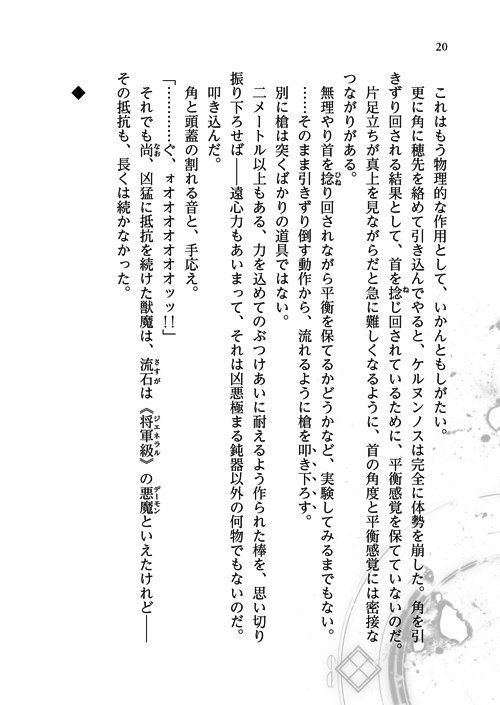 20
これはもう物理的な作用として、いかんともしがたい。
更に角に穂先を絡めて引き込んでやると、ケルヌンノスは完全に体勢を崩した。角を引
きずり回される結果として、首を捻じ回されているために、平衡感覚を保てていないのだ。
片足立ちが真上を見ながらだと急に難しくなるように、首の角度と平衡感覚には密接な
つながりがある。
無理やり首を捻り回されながら平衡を保てるかどうかなど、実験してみるまでもない。
……そのまま引きずり倒す動作から、流れるように槍を叩き下ろす。
別に槍は突くばかりの道具ではない。
二メートル以上もある、力を込めてのぶつけあいに耐えるよう作られた棒を、思い切り
振り下ろせば――遠心力もあいまって、それは凶悪極まる鈍器以外の何物でもないのだ。
叩き込んだ。
角と頭蓋の割れる音と、手応え。
「…………ぐ、ォオオオオオオオオッッ!!」
それでも尚、凶猛に抵抗を続けた獣魔は、流石は《将軍級》の悪魔といえたけれど――
その抵抗も、長くは続かなかった。
◆